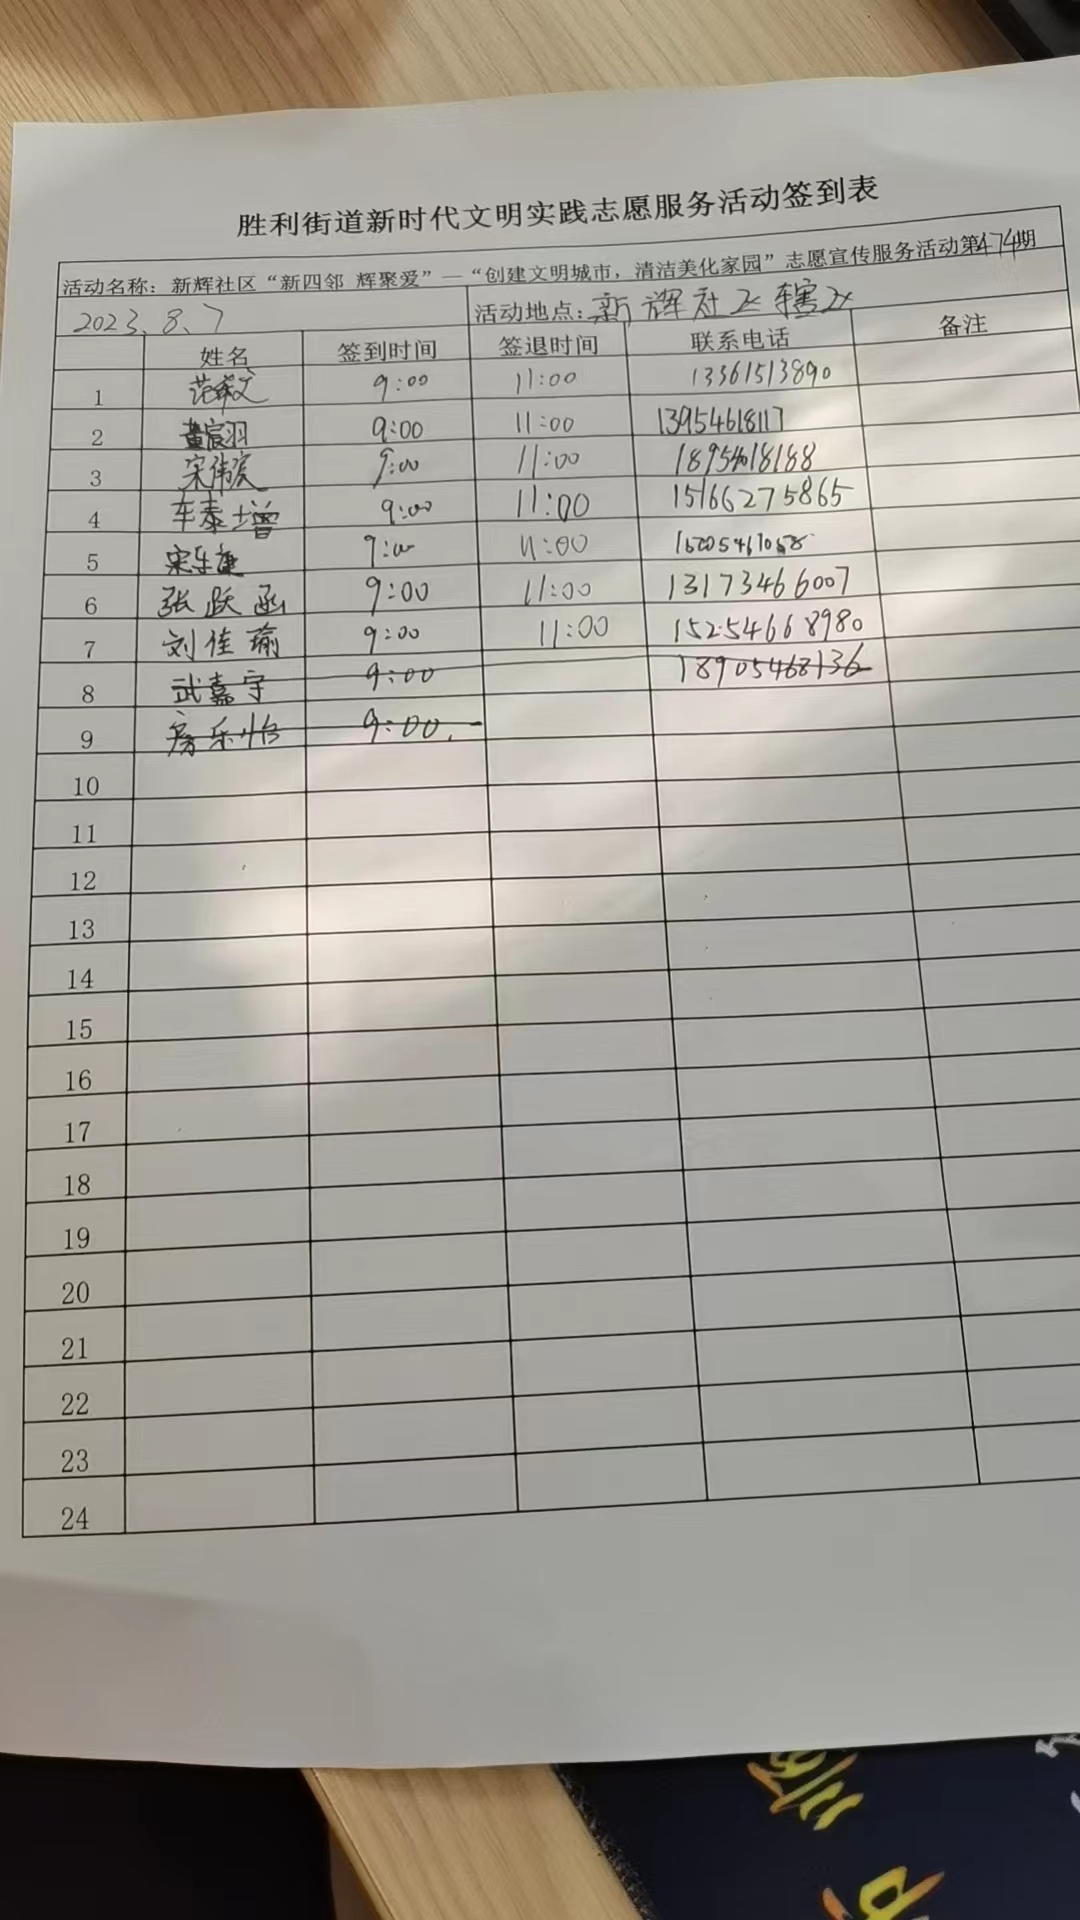 胜利街道新时代文明实践志愿服务活动签到表
活动名称：新辉社区“新四邻 辉聚爱”—“创建文明城市，清洁美化家园”志愿宣传服务活动第474期
2023.8.7 活动地点：新辉社区辖区
姓名 签到时间 签退时间 联系电话 备注
1 9:00 11:00 13361513890
2 黄宸羽 9:00 11:00 13954618117
3 9:00 11:00
4 车泰增 9:00 11:00 15166275865
5 9:00 11:00
6 张跃函 9:00 11:00 13173466007
7 刘佳瑜 9:00 11:00 15254668980
8 武嘉宁 9:00 18905468136
9 房乐怡 9:00.
10
11
12
13
14
15
16
17
18
19
20
21
22
23
24